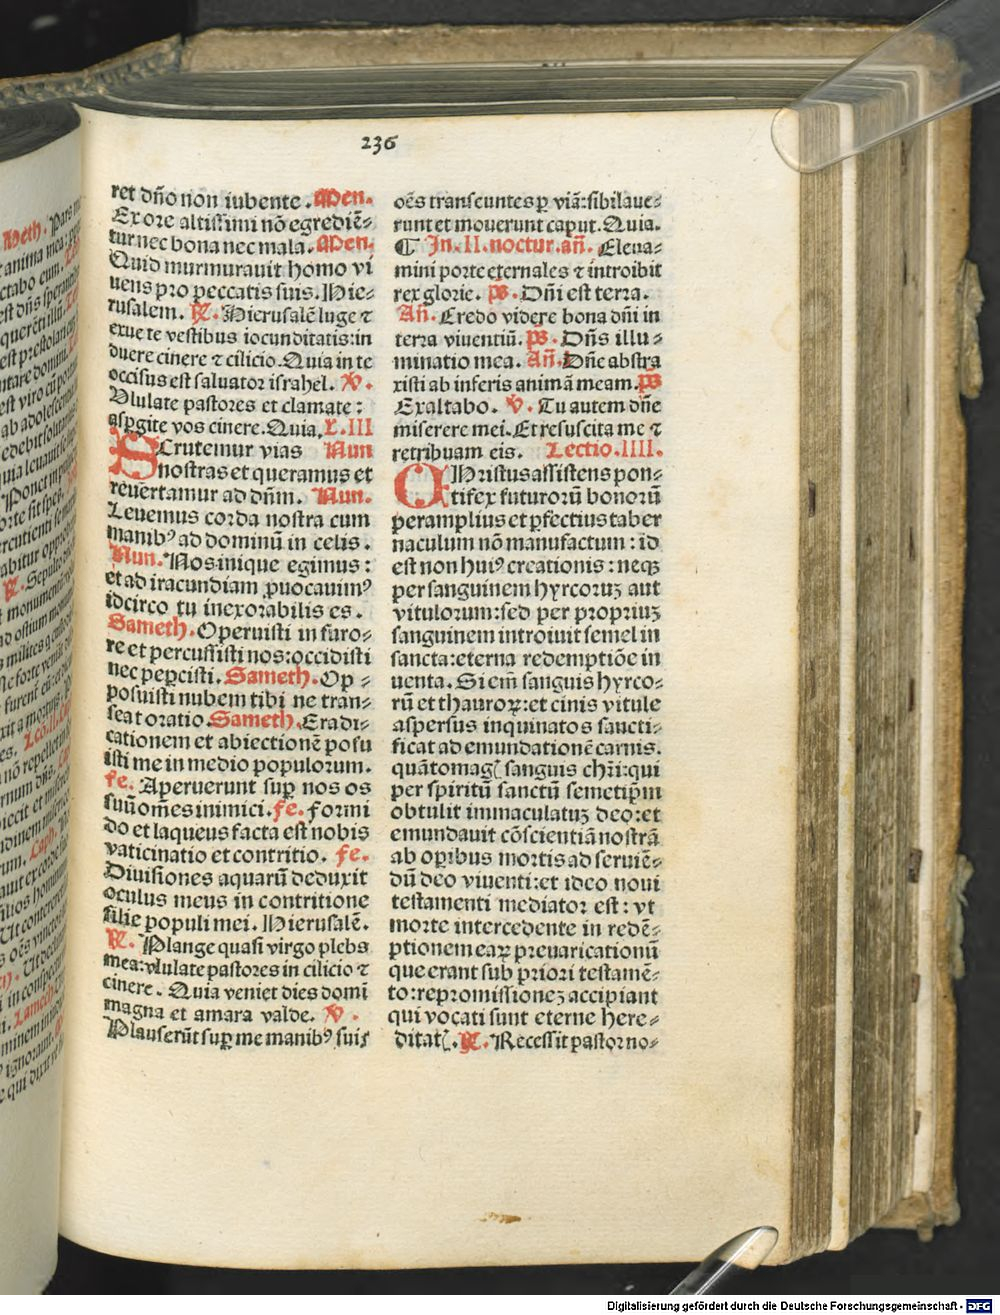 236
ret dño non iubente. Men.
Ex ore altissimi nõ egrediẽ-
tur nec bona nec mala. Men.
Quid murmurauit homo vi
uens pro peccatis suis. Hie-
rusalem. ℟. Hierusalẽ luge ⁊
exue te vestibus iocunditatis: in
duere cinere ⁊ cilicio. Quia in te
occisus est saluator israhel. ℣.
Ululate pastores et clamate:
aspgite vos cinere. Quia. L. III
SCrutemur vias Nun
nostras et queramus et
reuertamur ad dñm. Nun.
Leuemus corda nostra cum
manibꝰ ad dominũ in celis.
Nun. Nos inique egimus:
et ad iracundiam ꝓuocauimꝰ
idcirco tu inexorabilis es.
Sameth. Operuisti in furo-
re et percussisti nos: occidisti
nec pepercisti. Sameth. Op-
posuisti nubem tibi ne tran-
seat oratio. Sameth. Eradi-
cationem et abiectionẽ posu
isti me in medio populorum.
fe. Aperuerunt sup nos os
suũ omẽs inimici. fe. formi
do et laqueus facta est nobis
vaticinatio et contritio. fe.
Diuisiones aquarũ deduxit
oculus meus in contritione
filie populi mei. Hierusalẽ.
℟. Plange quasi virgo plebs
mea: vlulate pastores in cilicio ⁊
cinere. Quia veniet dies domĩ
magna et amara valde. ℣.
Plauserũt sup me manibꝰ suis
oẽs transeuntes ꝑ viã: sibilaue-
runt et mouerunt caput. Quia.
¶ In. II. noctur. añ. Eleua-
mini porte eternales ⁊ introibit
rex glorie. ps. Dñi est terra.
Añ. Credo videre bona dñi in
terra viuentiũ. ps. Dñs illu-
minatio mea. Añ. Dñe abstra
xisti ab inferis animã meam. ps
Exaltabo. ℣. Tu autem dñe
miserere mei. Et resuscita me ⁊
retribuam eis. Lectio. IIII.
CHristus assistens pon-
tifex futurorũ bonorũ
per amplius et ꝑfectius taber
naculum nõ manufactum: id
est non huiꝰ creationis: neqꝫ
per sanguinem hyrcoruꝫ aut
vitulorum: sed per propriuꝫ
sanguinem introiuit semel in
sancta: eterna redemptiõe in
uenta. Si em̃ sanguis hyrco-
rũ et thauroꝝ: et cinis vitule
aspersus inquinatos sancti-
ficat ad emundationẽ carnis.
quãtomagꝭ sanguis chr̃i: qui
per spiritũ sanctũ semetip̃m
obtulit immaculatuꝫ deo: et
emundauit cõscientiã nostrã
ab oꝑibus mortis ad seruiẽ-
dũ deo viuenti: et ideo noui
testamenti mediator est: vt
morte intercedente in redẽ-
ptionem eaꝝ preuaricationũ
que erant sub priori testamẽ-
to: repromissioneꝫ accipiant
qui vocati sunt eterne here-
ditatꝭ. ℟. Recessit pastor no-
Digitalisierung gefördert durch die Deutsche Forschungsgemeinschaft - DFG